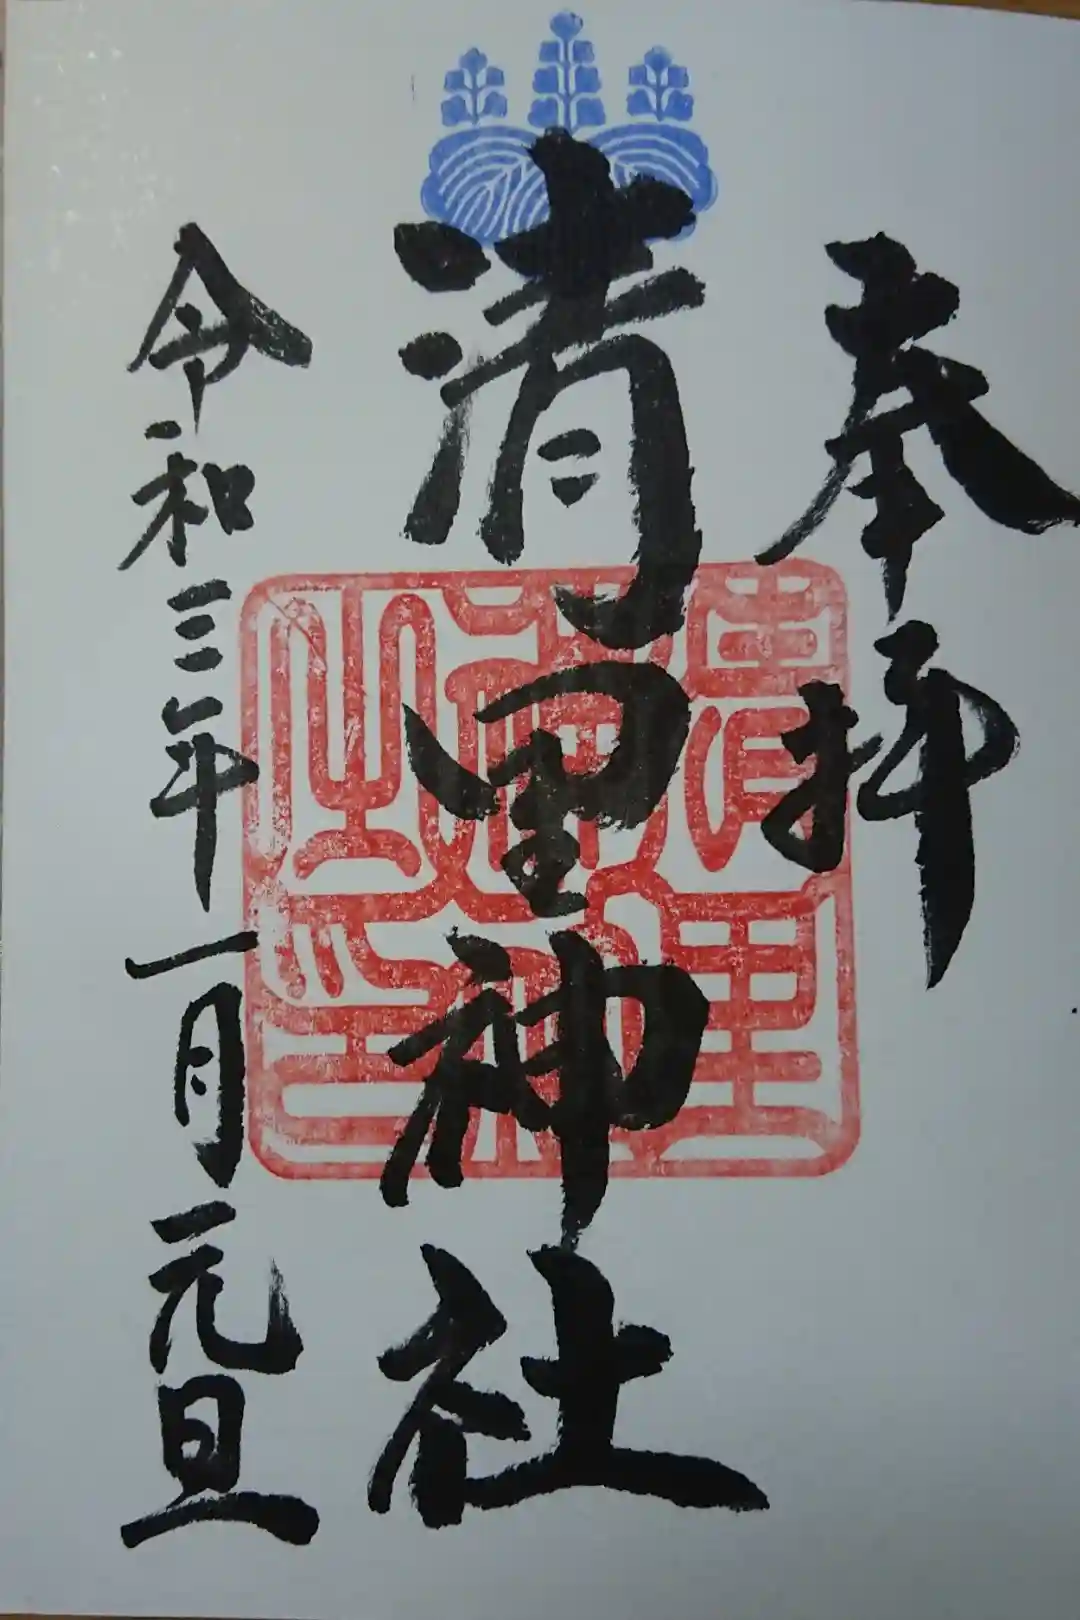 奉拝
清里神社
清里神社之印
令和三年一月元旦